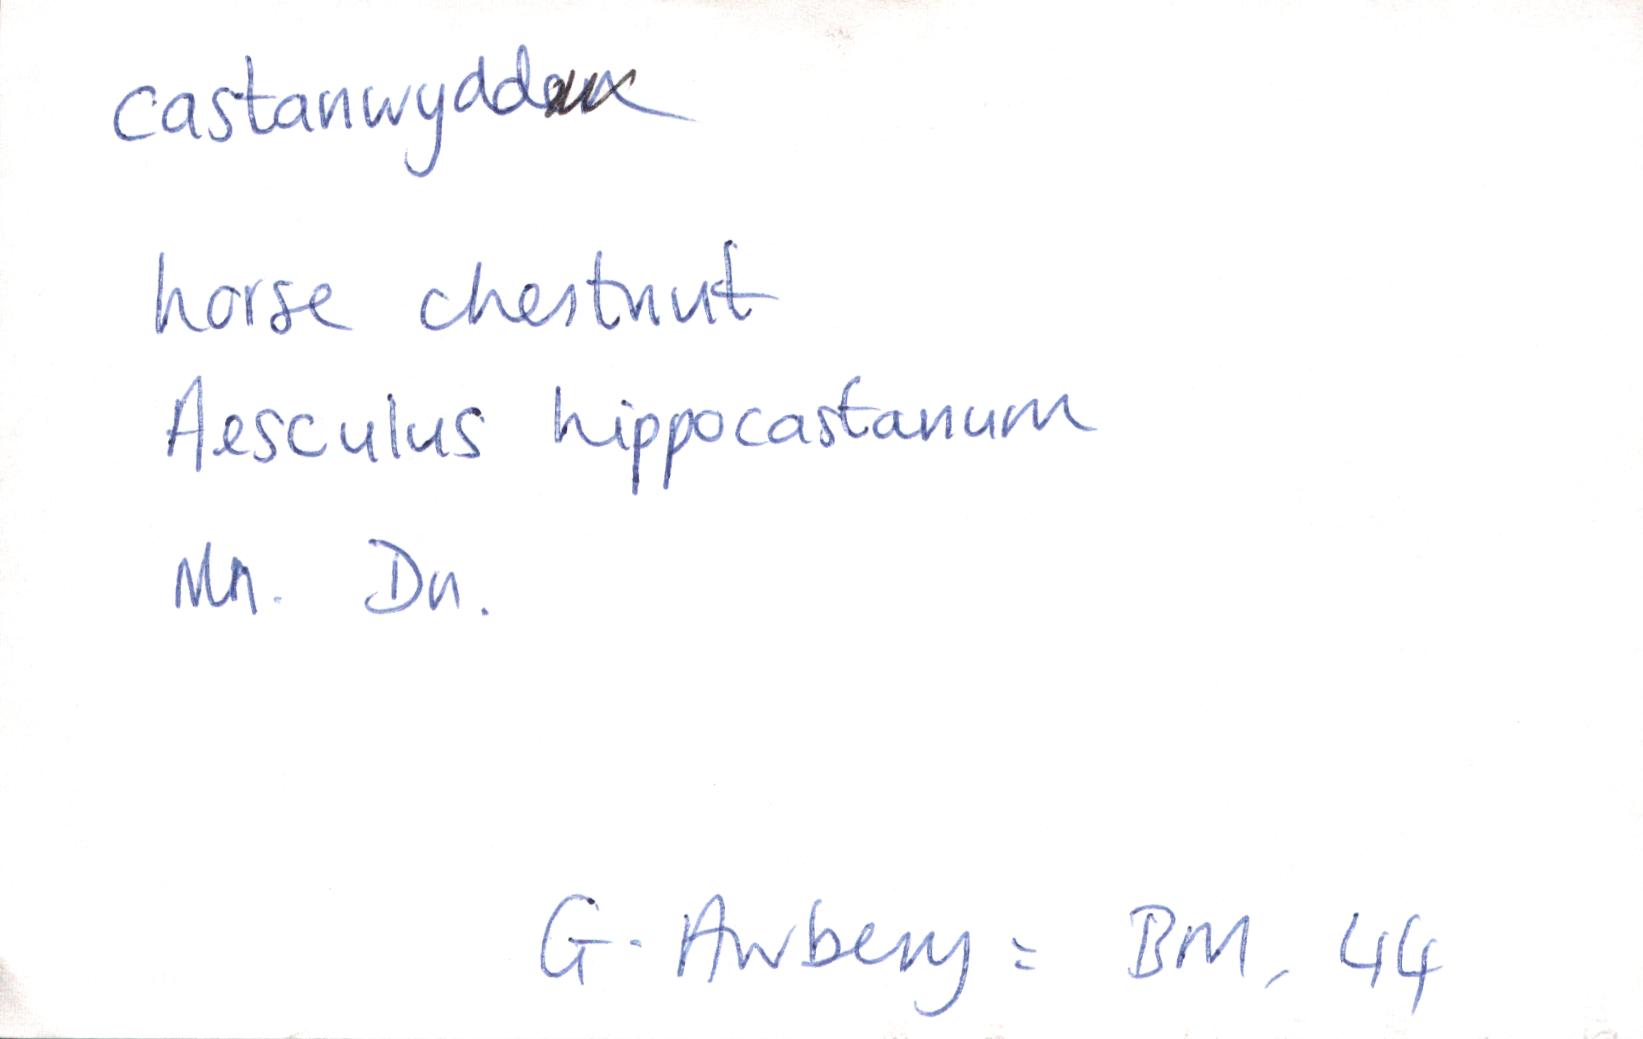 castanwydden
horse chestnut
Aesculus hippocastanum
Mn. Dn.
G. Awbery: BM, 44